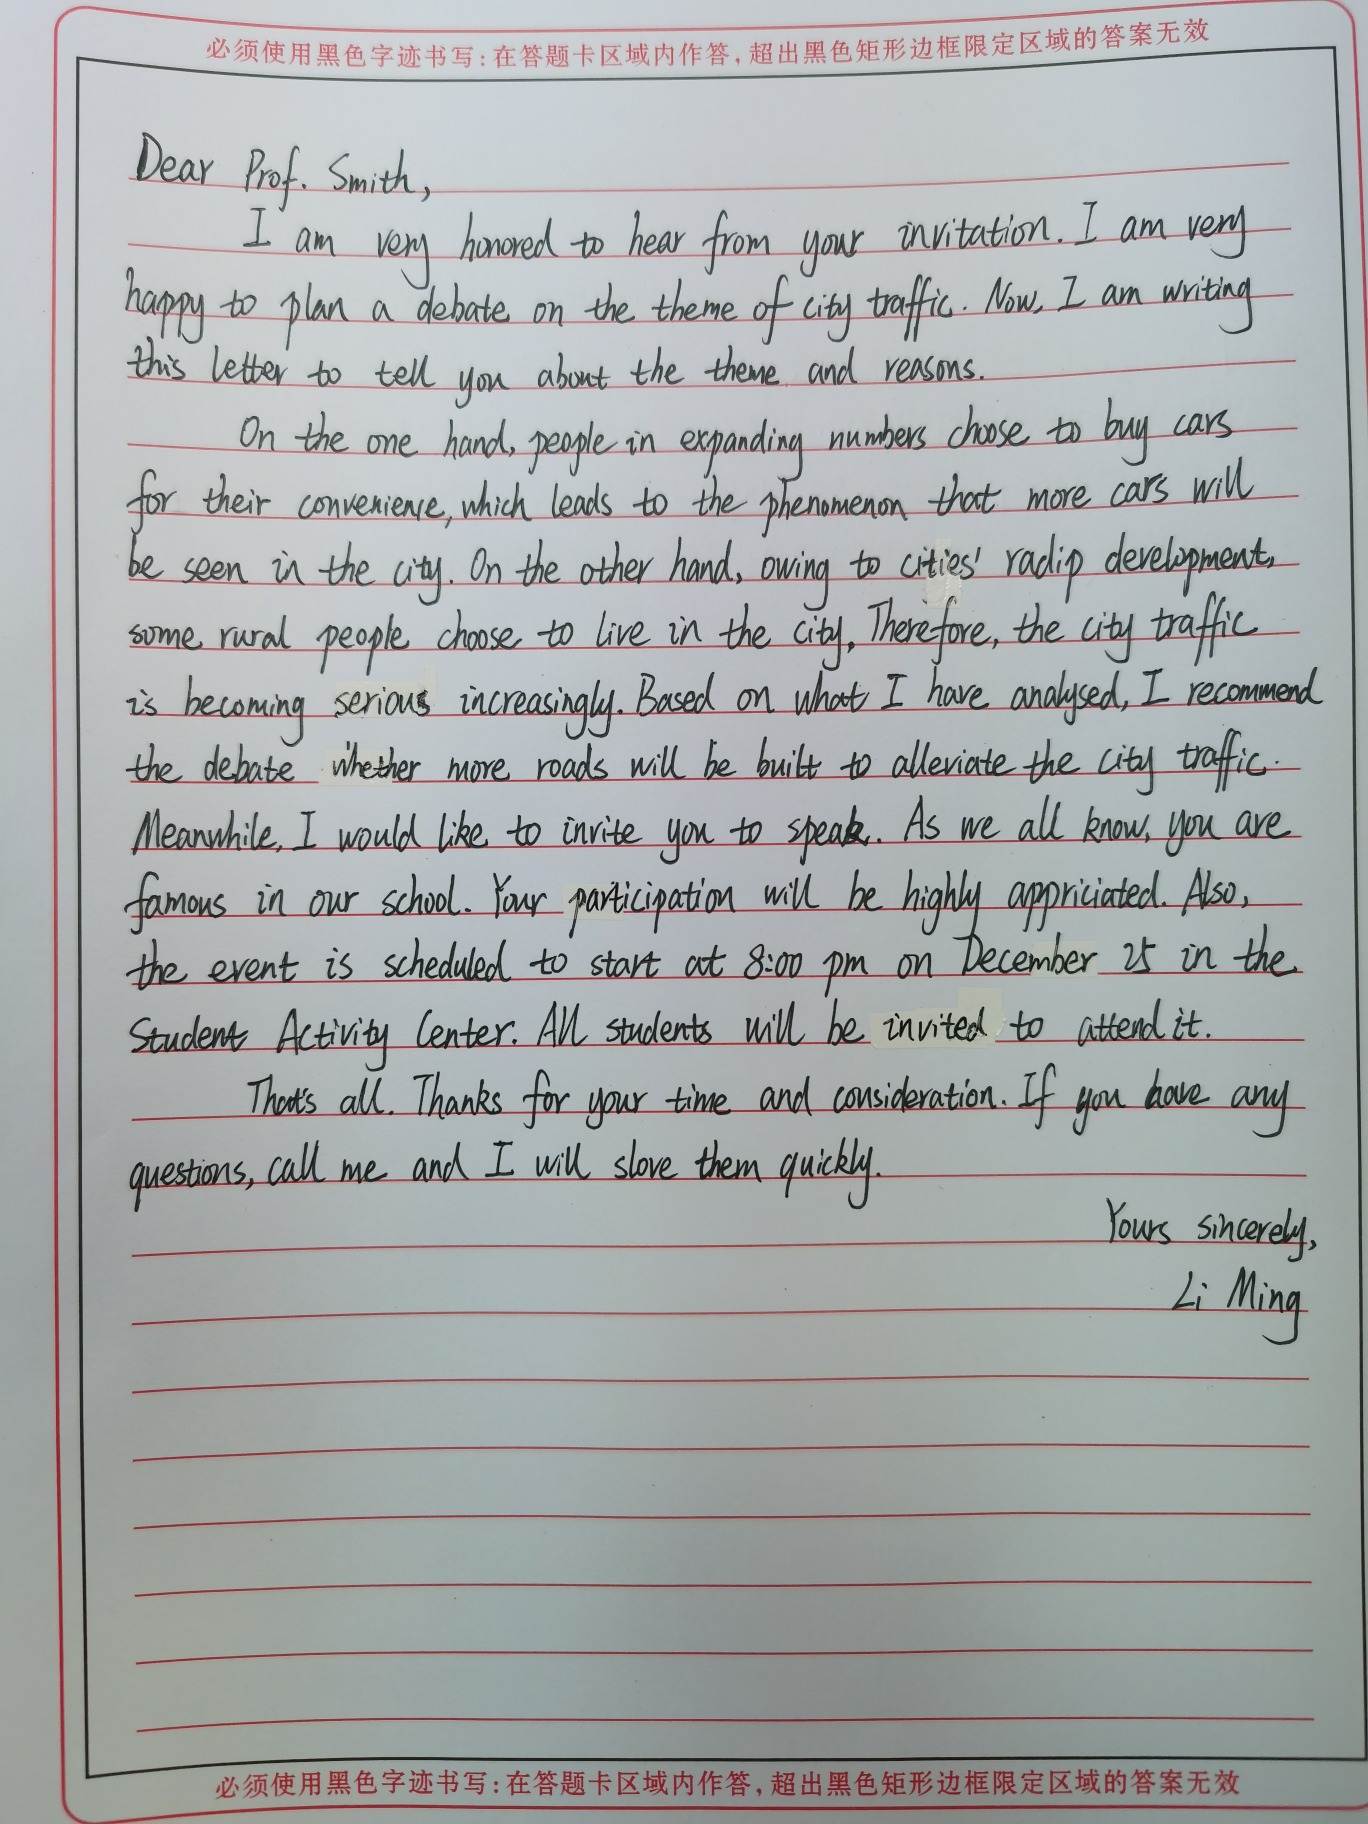 必须使用黑色字迹书写:在答题卡区域内作答,超出黑色矩形边框限定区域的答案无效
Dear Prof. Smith,
I am very honored to hear from your invitation. I am very
happy to plan a debate on the theme of city traffic. Now, I am writing
this letter to tell you about the theme and reasons.
On the one hand, people in expanding numbers choose to buy cars
for their convenience, which leads to the phenomenon that more cars will
be seen in the city. On the other hand, owing to cities' radip development,
some rural people choose to live in the city. Therefore, the city traffic
is becoming serious increasingly. Based on what I have analysed, I recommend
the debate whether more roads will be built to alleviate the city traffic.
Meanwhile, I would like to invite you to speak. As we all know, you are
famous in our school. Your participation will be highly appriciated. Also,
the event is scheduled to start at 8:00 pm on December 25 in the
Student Activity Center. All students will be invited to attend it.
That's all. Thanks for your time and consideration. If you have any
questions, call me and I will slove them quickly.
Yours sincerely,
Li Ming
必须使用黑色字迹书写:在答题卡区域内作答,超出黑色矩形边框限定区域的答案无效